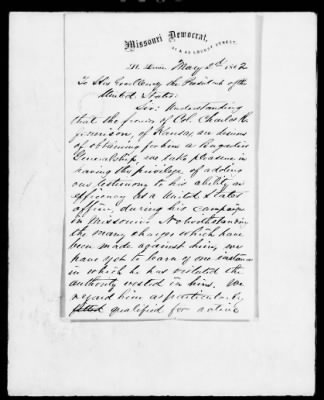 Missouri Democrat,
LOCUST STREET,
St. Louis May 2d 1862
To His Excellency the President of the
United States
Sir: Understanding
that the friends of Col. Charles R.
Jennison, of Kansas, are desirous
of obtaining for him a Brigadier
Generalship, we take pleasure in
having the privilege of adding
our testimony to his ability and
efficiency as a United States
officer, during his campaign
in Missouri. Notwithstanding
the many charges which have
been made against him, we
have yet to learn of one instance
in which he has violated the
authority vested in him. We
regard him as particularly
fitted qualified for active